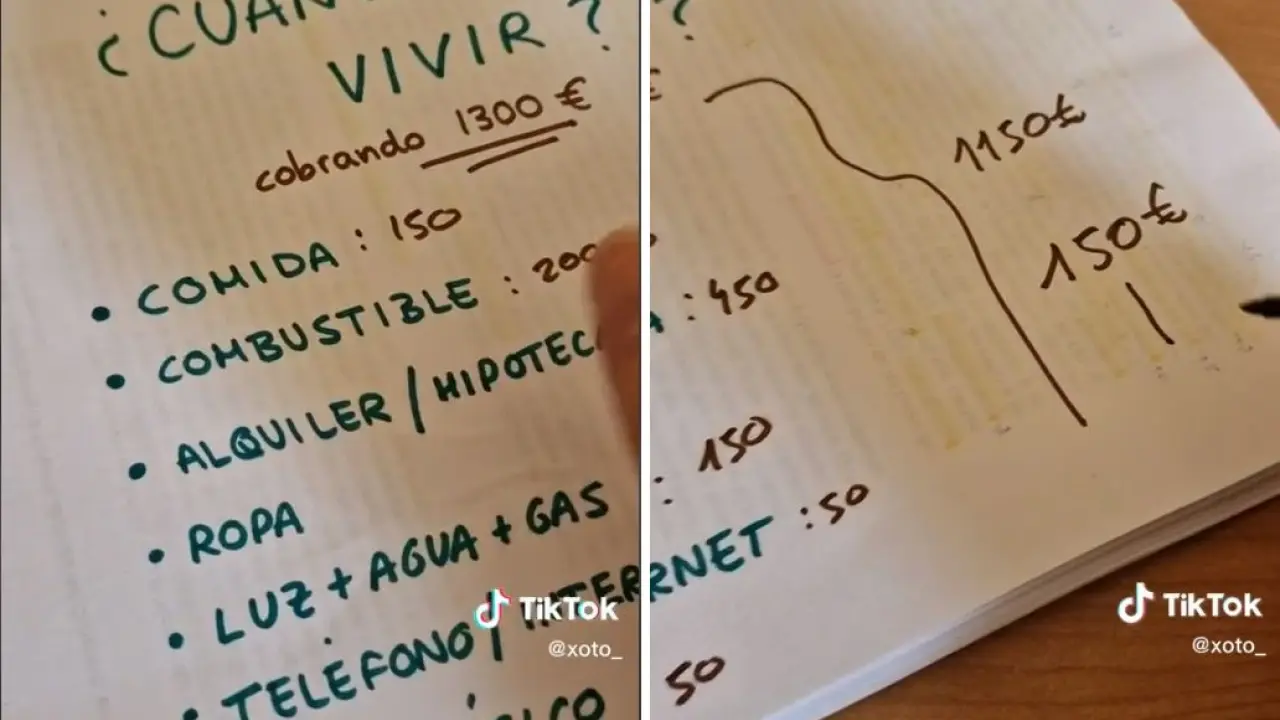 ¿CUÁN
VIVIR?
cobrando 1300 €
• COMIDA : 150
• COMBUSTIBLE : 200
• ALQUILER / HIPOTECA
• ROPA
• LUZ + AGUA + GAS
• TELÉFONO / INTER
TikTok
@xoto_
?
€
1150€
150€
: 450
: 150
RNET : 50
50
TikTok
@xoto_